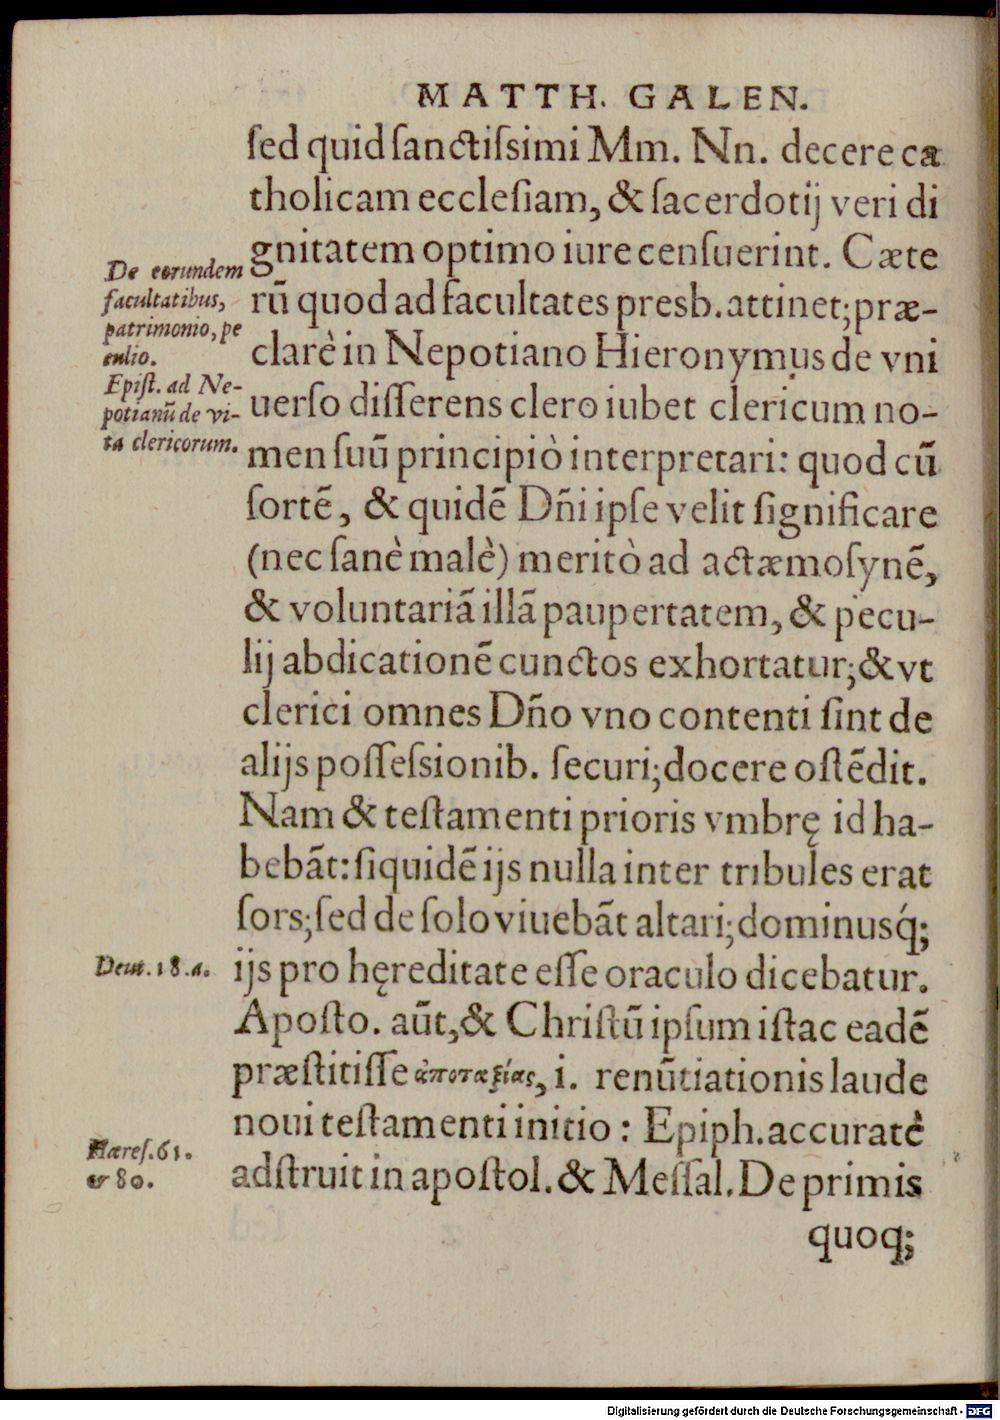 MATTH. GALEN.
ſed quid ſanctiſsimi Mm. Nn. decere ca
tholicam eccleſiam, & ſacerdotij veri di
gnitatem optimo iure cenſuerint. Cæte
rũ quod ad facultates presb. attinet; præ-
clarè in Nepotiano Hieronymus de vni
uerſo diſſerens clero iubet clericum no-
men ſuũ principiò interpretari: quod cũ
ſortẽ, & quidẽ Dñi ipſe velit ſignificare
(nec ſanè malè) meritò ad actæmoſynẽ,
& voluntariã illã paupertatem, & pecu-
lij abdicationẽ cunctos exhortatur; & vt
clerici omnes Dño vno contenti ſint de
alijs poſſeſsionib. ſecuri; docere oſtẽdit.
Nam & teſtamenti prioris vmbrę id ha-
bebãt: ſiquidẽ ijs nulla inter tribules erat
ſors; ſed de ſolo viuebãt altari; dominusq́;
ijs pro hęreditate eſſe oraculo dicebatur.
Apoſto. aũt, & Chriſtũ ipſum iſtac eadẽ
præſtitiſſe ἀποταξίας, i. renũtiationis laude
noui teſtamenti initio: Epiph. accuratè
adſtruit in apoſtol. & Meſſal. De primis
quoq;
De eorundem
facultatibus,
patrimonio, pe
culio.
Epiſt. ad Ne-
potianũ de vi-
ta clericorum.
Deut. 18. a.
Hæreſ. 61.
& 80.
Digitalisierung gefördert durch die Deutsche Forschungsgemeinschaft - DFG